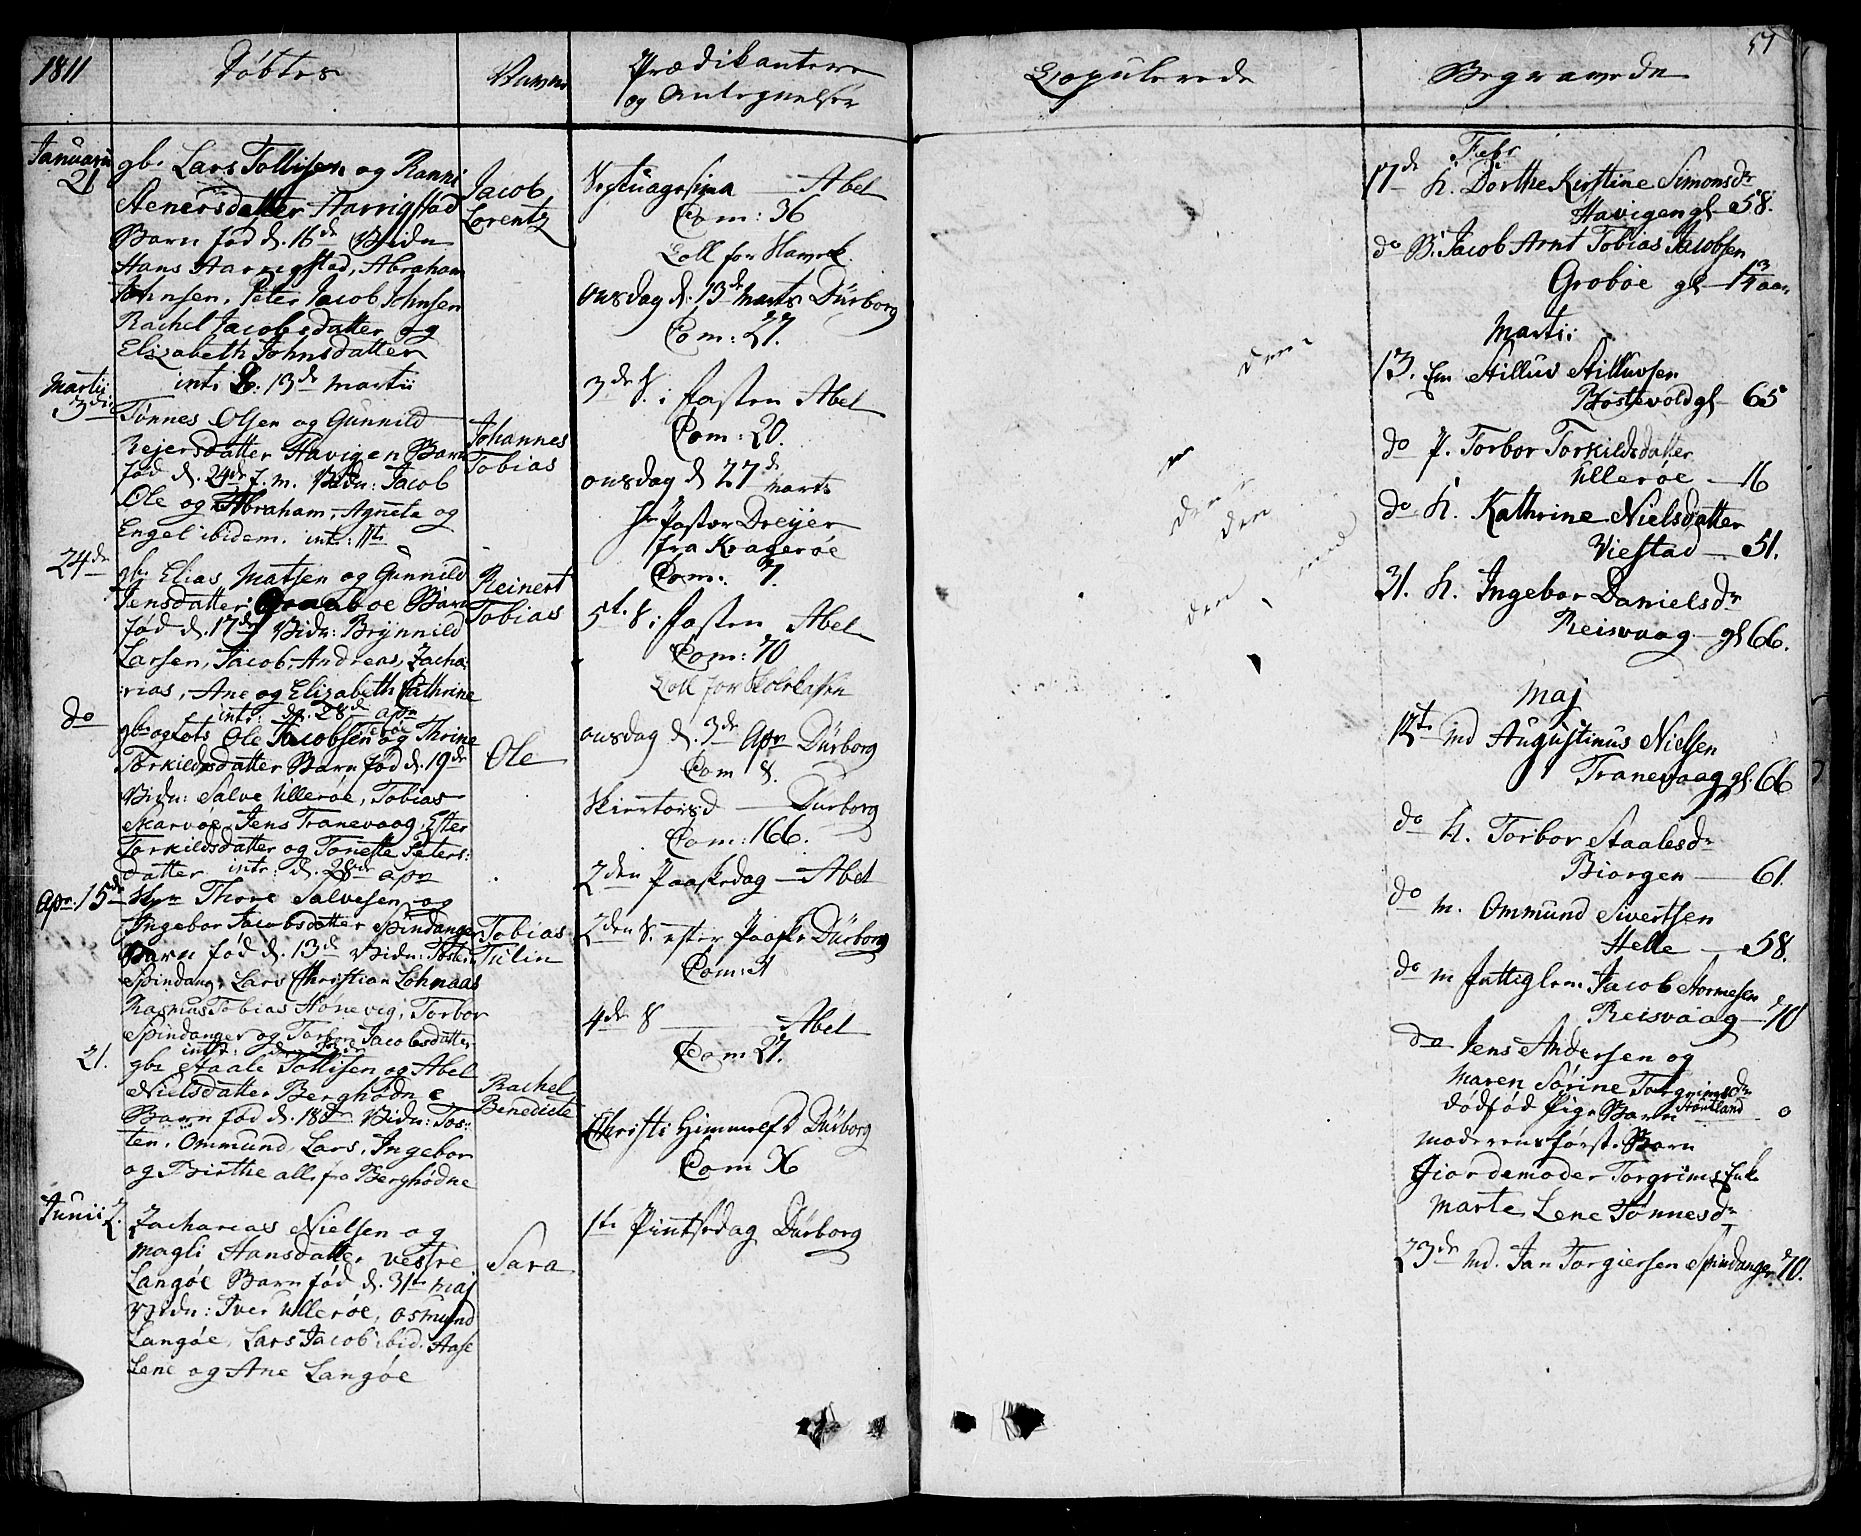 1811
Døbtes
Navne
Prædikantere
og Antegnelser
Januarii
21
gb. Lars Tollisen og Ranni
Stenersdatter Harrigstad
Barn fød d. 16de Vidn
Hans Harrigstad, Abraham
Johnsen, Peter Jacob Johnsen
Rachel Jacobsdatter og
Elizabeth Johnsdatter
intr: 13de Martii
Jacob
Lorentz
Martii
3die
Tønnes Olsen og Gunnild
Rejersdatter Havigen Barn
fød d. 24de f. m. Vidn: Jacob
Ole og Abraham, Agnete og
Engel ibidem. intr:
Johannes
Tobias
24de
gbr Elias Matsen og Gunnild
Jensdatter Barn
fød d. 17de Vidn: Brynnild
Larsen, Jacob, Andreas, Zacha:
:rias, Ane og Elizabeth Cathrine
intr: d. 28de apr
Reinert
Tobias
do
gbr og Ole Jacobsen og Thrine
Torkildsdatter Barn fød d. 19de
Vidn: Salve Ullerøe, Tobias
Skarvøe, Jens Tranevaag, Ester
Torkildsdatter og Tonette Peters:
datter intr: d. 28de apr
Ole
Apr. 15de
Thore Salvesen og
Ingebor Jacobsdatter Spindanger
Barn fød d. 13de Vidn: Tosten
Spindang, Lars Christian Lohnaas
Rasmus Tobias Hønevig, Torbor
Spindanger og Torbor Jacobsdatter
intr:
Tobias
Tulin
21.
gbr Staale Tollisen og Abel
Nielsdatter Berghødne
Barn fød d. 18de Vidn: Tos:
ten, Ommund, Lars, Ingebor
og Birthe alle fra Berghødne
Rachel
Benedicte
Junii 2.
Zacharias Nielsen og
Magli Hansdatter vestre
Langøe Barn fød d. 31te Maj
Vidn: Iver Ullerøe, Osmund
Langøe, Lars Jacob ibid. Aase
Lene og Ane Langøe
Sara
Septuagesima Abel
Com: 36
Coll for
Onsdag d. 13de Marts Dürborg
Com: 27.
3de S. i Fasten Abel
Com: 20.
Onsdag d 27de
Marts
Hr Pastor Dreyer
fra Kragerøe
Com: 7.
5te S. i Fasten Abel
Com: 70
Coll for
Onsdag d. 3de Apr Dürborg
Com 8.
Skiertorsd Dürborg
Com: 166.
2den Paaskedag Abel
2den S. efter Paaske Dürborg
Com: 21
4de S Abel
Com 27.
Christi Himmelf Dürborg
Com 36
1te Pintsedag Dürborg
Copulerede
Begravede
51
Febr
17de K. Dorthe Kirstine Simonsdr
Havigen gl 58.
do B. Jacob Arnt Tobias Jacobsen
Groboe gl
Martii
13. Em Stilluv Stilluvsen
Bostevold gl 65
do P. Torbor Torkildsdatter
Ullerøe 16
do K. Kathrine Nielsdatter
Viestad 51.
31. K. Ingebor Danielsdr
Reisvaag gl 66.
Maj
12te Md Augustinus Nielsen
Tranevaag gl. 66
do K. Torbor Staalesdr
Biorgen 61.
do M. Ommund Sivertsen
Helle 58.
do M Jacob Stormesen
Reisvaag 70
do Jens Andersen og
Maren Sørine Torgrimsdr
dødfød Pige Barn 0
Moderens først. Barn
Giordemoder Torgrims Enke
Marte Lene Tønnesdr
23de Md. Jan Torgiersen Spindanger 70.